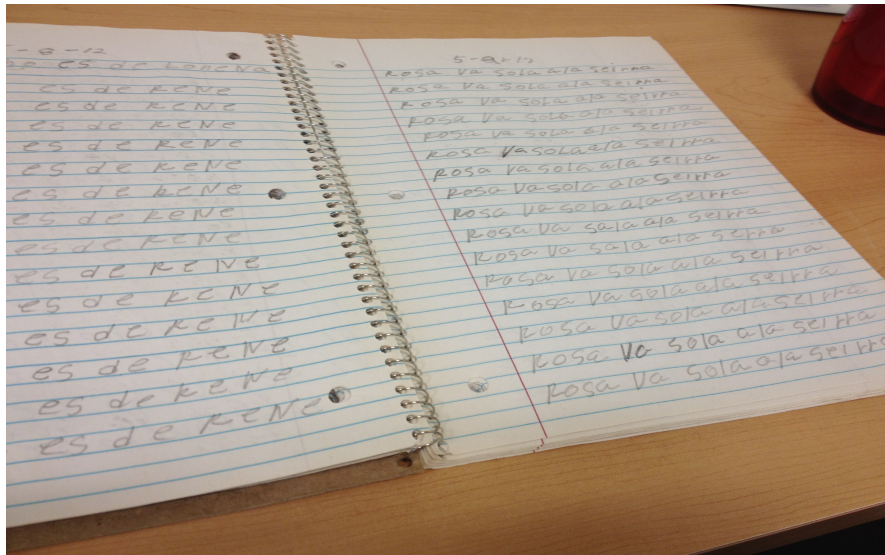 -8-12
es de LoreNa
es de ReNe
es de ReNe
es de ReNe
es de ReNe
es de ReNe
es de ReNe
es de ReNe
es de ReNe
es de ReNe
es de ReNe
es de ReNe
es de ReNe
es de ReNe
es de ReNe
5-9-12
Rosa Va sola ala seirra
Rosa Va sola ala seirra
Rosa Va sola ala seirra
Rosa Va sola ala seirra
Rosa Va sola ala seirra
Rosa Va sola ala seirra
Rosa Va sola ala seirra
Rosa Va sola ala seirra
Rosa Va sola ala seirra
Rosa Va sala ala seirra
Rosa Va sola ala seirra
Rosa Va sola ala seirra
Rosa Va sola ala seirra
Rosa Va sola ala seirra
Rosa Va sola ala seirra
Rosa Va sola ala seirra